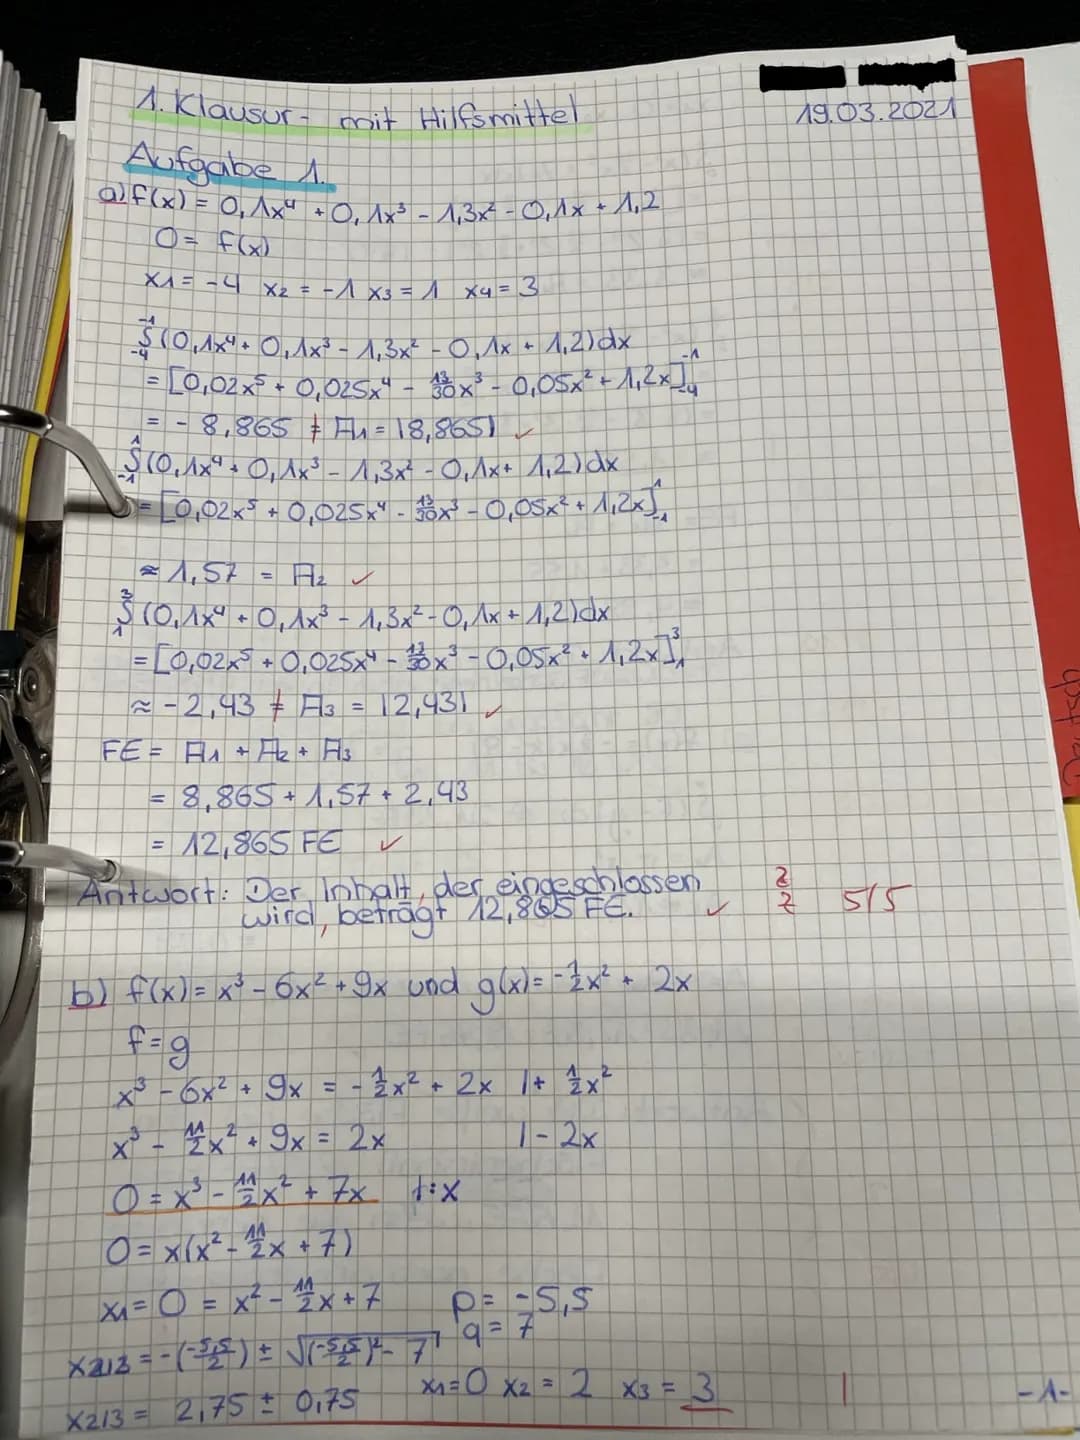 1. Klausur - mit Hilfsmittel
19.03.2021
Aufgabe 1.
a) f(x) = 0,1x⁴ + 0,1x³ - 1,3x² - 0,1x + 1,2
0 = f(x)
x1 = -4 x2 = -1 x3 = 1 x4 = 3
-1
∫(0,1x⁴ + 0,1x³ - 1,3x² - 0,1x + 1,2)dx
-4
= [0,02x⁵ + 0,025x⁴ - 13/30x³ - 0,05x² + 1,2x]₋₄⁻¹
= - 8,865 ≠ A1 = |8,865| ✓
1
∫(0,1x⁴ + 0,1x³ - 1,3x² - 0,1x + 1,2)dx
-1
= [0,02x⁵ + 0,025x⁴ - 13/30x³ - 0,05x² + 1,2x]₋₁¹
≈ 1,57 = A2 ✓
3
∫(0,1x⁴ + 0,1x³ - 1,3x² - 0,1x + 1,2)dx
1
= [0,02x⁵ + 0,025x⁴ - 13/30x³ - 0,05x² + 1,2x]₁³
≈ -2,43 ≠ A3 = |2,43| ✓
FE = A1 + A2 + A3
= 8,865 + 1,57 + 2,43
= 12,865 FE ✓
Antwort: Der Inhalt, der eingeschlossen
wird, beträgt 12,865 FE. ✓ 5/5
b) f(x) = x³ - 6x² + 9x und g(x) = -1/2x² + 2x
f = g
x³ - 6x² + 9x = -1/2x² + 2x |+ 1/2x²
x³ - 11/2x² + 9x = 2x |- 2x
0 = x³ - 11/2x² + 7x |:x
0 = x(x² - 11/2x + 7)
x1 = 0 = x² - 11/2x + 7 p = -5,5
q = 7
x2/3 = -(-5,5/2) ± √((-5,5/2)² - 7)
x2/3 = 2,75 ± 0,75 x1 = 0 x2 = 2 x3 = 3 |
-1-